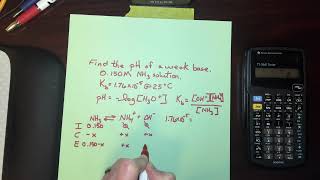 Find the pH of a weak base.
0.150M NH₃ solution.
K_b = 1.76×10⁻⁵ @ 25°C
pH = -log[H₃O⁺] K_b = [OH⁻][NH₄⁺] / [NH₃]
NH₃ ⇌ NH₄⁺ + OH⁻ 1.76×10⁻⁵ =
I 0.150 0 0
C -x +x +x
E 0.150-x +x